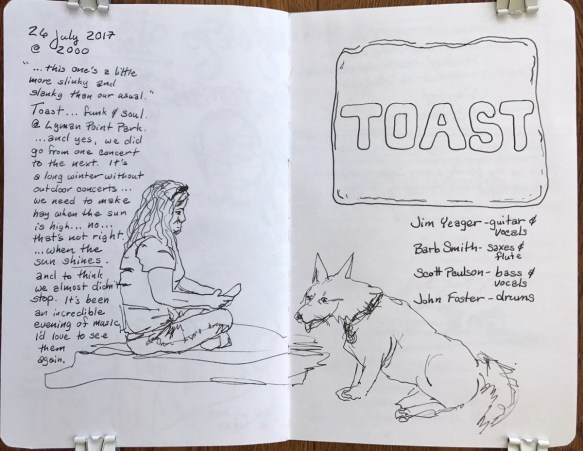 26 July 2017
@ 2000
"...this one's a little
more slinky and
slanky than our usual."
Toast... funk & soul.
@ Lyman Point Park.
...and yes, we did
go from one concert
to the next. It's
a long winter without
outdoor concerts...
we need to make
hay when the sun
is high... no...
that's not right.
...when the
sun shines.
and to think,
we almost didn't
stop. It's been
an incredible
evening of music,
I'd love to see
them
again.
TOAST
Jim Yeager - guitar &
vocals
Barb Smith - saxes &
flute
Scott Paulson - bass &
vocals
John Foster - drums